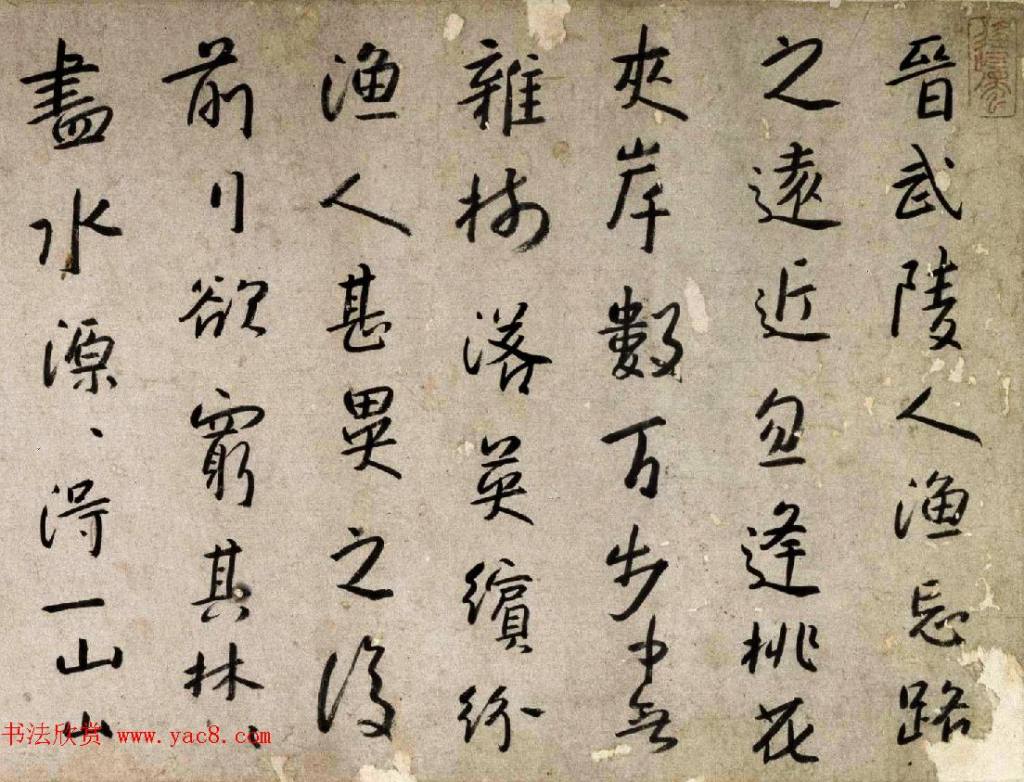 晉武陵人渔忘路
之遠近忽逢桃花
夾岸數百步中無
雜樹落英繽紛
渔人甚異之復
前行欲窮其林、
盡水源、得一山山
书法欣赏 www.yac8.com